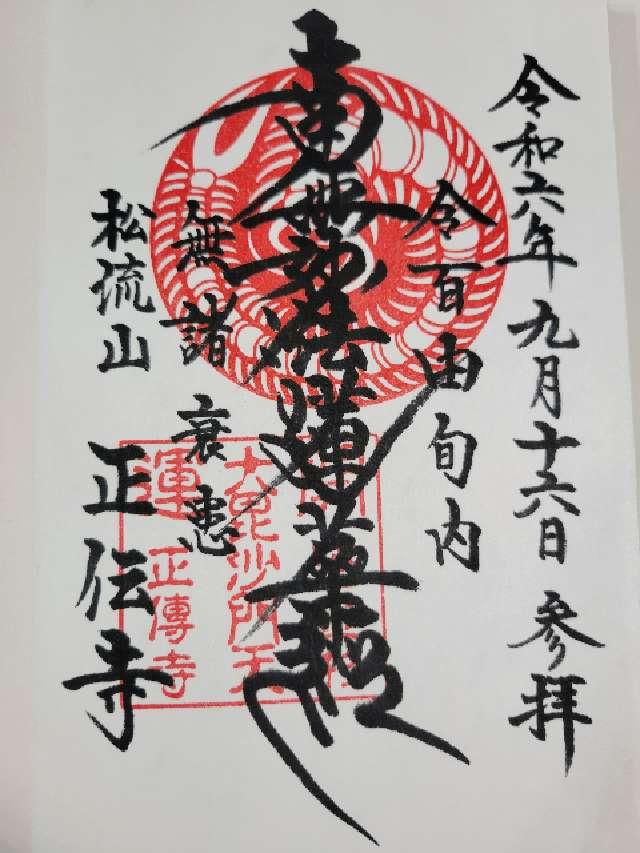 令和六年九月十六日 参拝
令百由旬内
南無妙法蓮華経
無諸衰患
松流山 正伝寺
開運
大毘沙門天
正傳寺